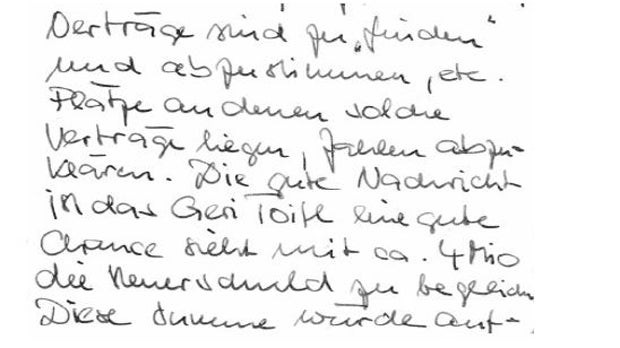 Verträge sind zu „finden“
und abzustimmen, etc.
Plätze an denen solche
Verträge liegen, Zahlen abzu-
klären. Die gute Nachricht
in das Geri Toifl eine gute
Chance sieht mit ca. 4 Mio
die Steuerschuld zu begleichen
Diese Summe wurde auf-